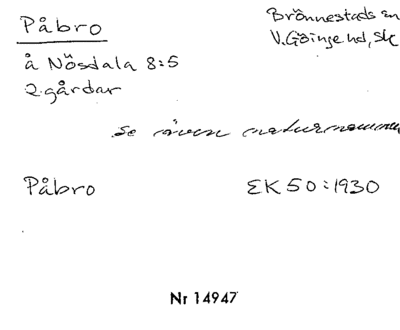 Påbro
Brönnestads sn
V. Göinge hd, Sk
å Nösdala 8:5
2 gårdar
se även naturnamnen
Påbro EK 50:1930
Nr 14947